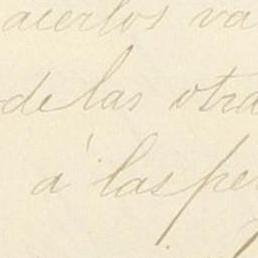 acerlos va
de las otra
á las pe